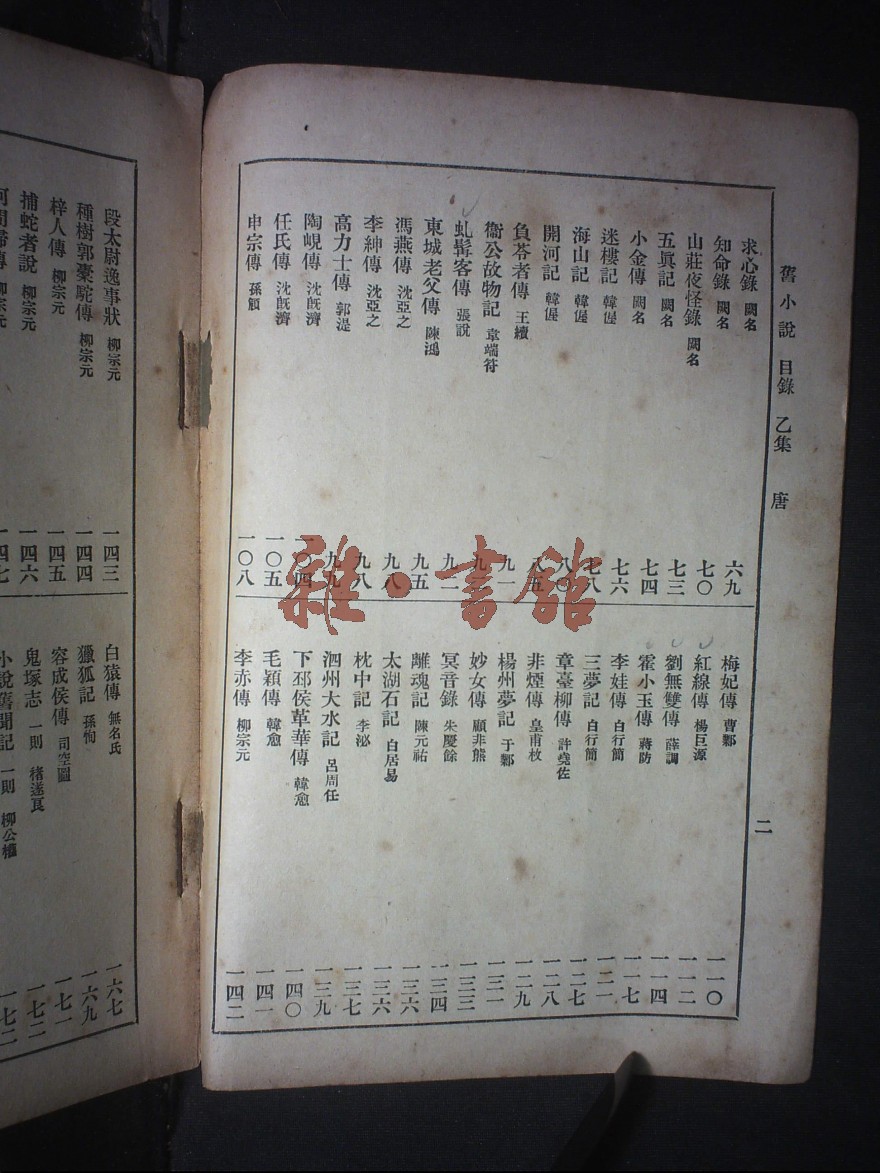 舊小說 目錄 乙集 唐 二
求心錄 闕名 六九
知命錄 闕名 七〇
山莊夜怪錄 闕名
五眞記 闕名 七三
小金傳 闕名 七四
迷樓記 韓偓 七六
海山記 韓偓 七八
開河記 韓偓 八〇
負苓者傳 王績 八五
衞公故物記 韋端符 九一
虬髯客傳 張說
東城老父傳 陳鴻 九二
馮燕傳 沈亞之 九五
李紳傳 沈亞之 九八
高力士傳 郭湜 九八
陶峴傳 沈旣濟
任氏傳 沈旣濟 一〇五
申宗傳 孫頠 一〇八
梅妃傳 曹鄴 一一〇
紅線傳 楊巨源 一一二
劉無雙傳 薛調 一一四
霍小玉傳 蔣防 一一七
李娃傳 白行簡 一二一
三夢記 白行簡 一二七
章臺柳傳 許堯佐 一二八
非煙傳 皇甫枚 一二九
楊州夢記 于鄴 一三一
妙女傳 顧非熊 一三三
冥音錄 朱慶餘 一三四
離魂記 陳元祐 一三六
太湖石記 白居易 一三六
枕中記 李泌 一三七
泗州大水記 呂周任 一三九
下邳侯革華傳 韓愈 一四〇
毛穎傳 韓愈 一四一
李赤傳 柳宗元 一四二
段太尉逸事狀 柳宗元 一四三
種樹郭橐駝傳 柳宗元 一四四
梓人傳 柳宗元 一四五
捕蛇者說 柳宗元 一四六
河間婦傳 柳宗元 一四七
白猿傳 無名氏 一六七
獵狐記 孫恂 一六九
容成侯傳 司空圖 一七一
鬼塚志 一則 褚遂良 一七二
小說舊聞記 一則 柳公權 一七二
雜·書館